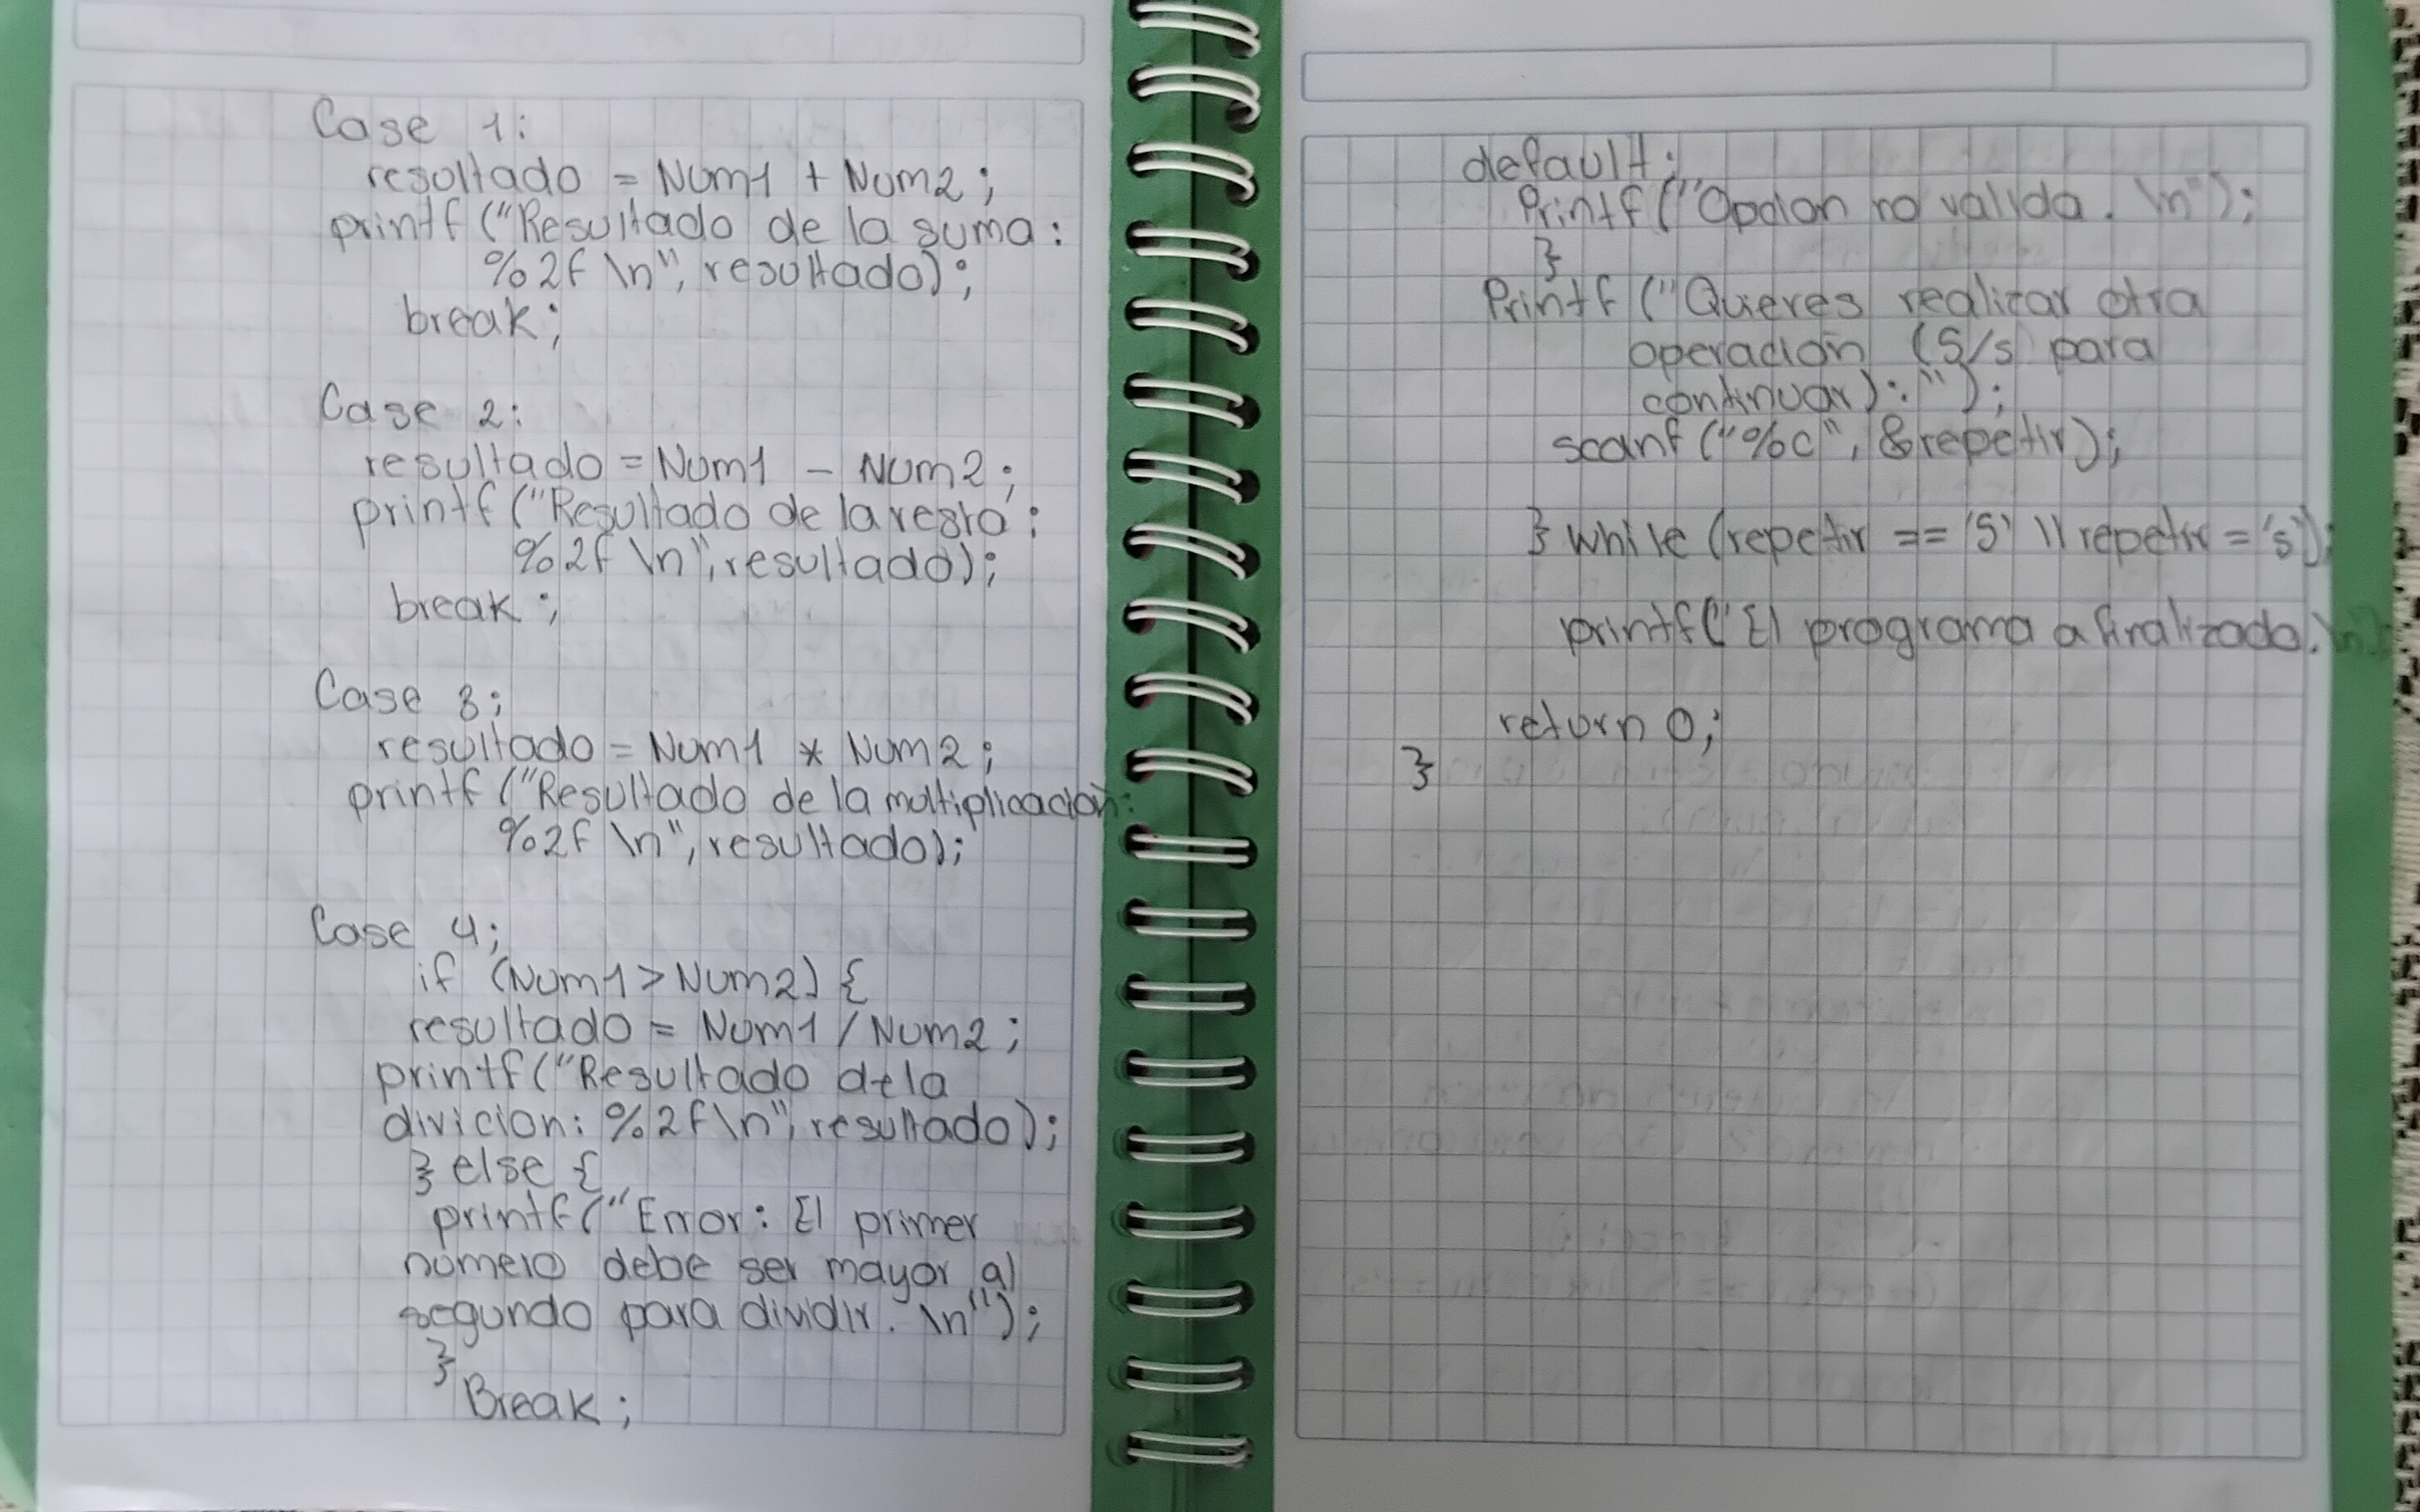 Case 1:
resultado = Num1 + Num2;
printf ("Resultado de la suma:
%2f \n", resultado);
break;
Case 2:
resultado = Num1 - Num2;
printf ("Resultado de la resta:
%2f \n", resultado);
break;
Case 3;
resultado = Num1 * Num2;
printf ("Resultado de la multiplicacion:
%2f \n", resultado);
Case 4;
if (Num1 > Num2) {
resultado = Num1 / Num2;
printf ("Resultado de la
divicion: %2f \n", resultado);
} else {
printf ("Error: El primer
número debe ser mayor al
segundo para dividir. \n");
}
Break;
default;
Printf ("Opcion no valida. \n");
}
Printf ("Quieres realizar otra
operación (S/s para
continuar): ");
scanf ("%c", &repetir);
} while (repetir == 'S' \\ repetir = 's');
printf ("El programa a finalizado. \n
return 0;
}